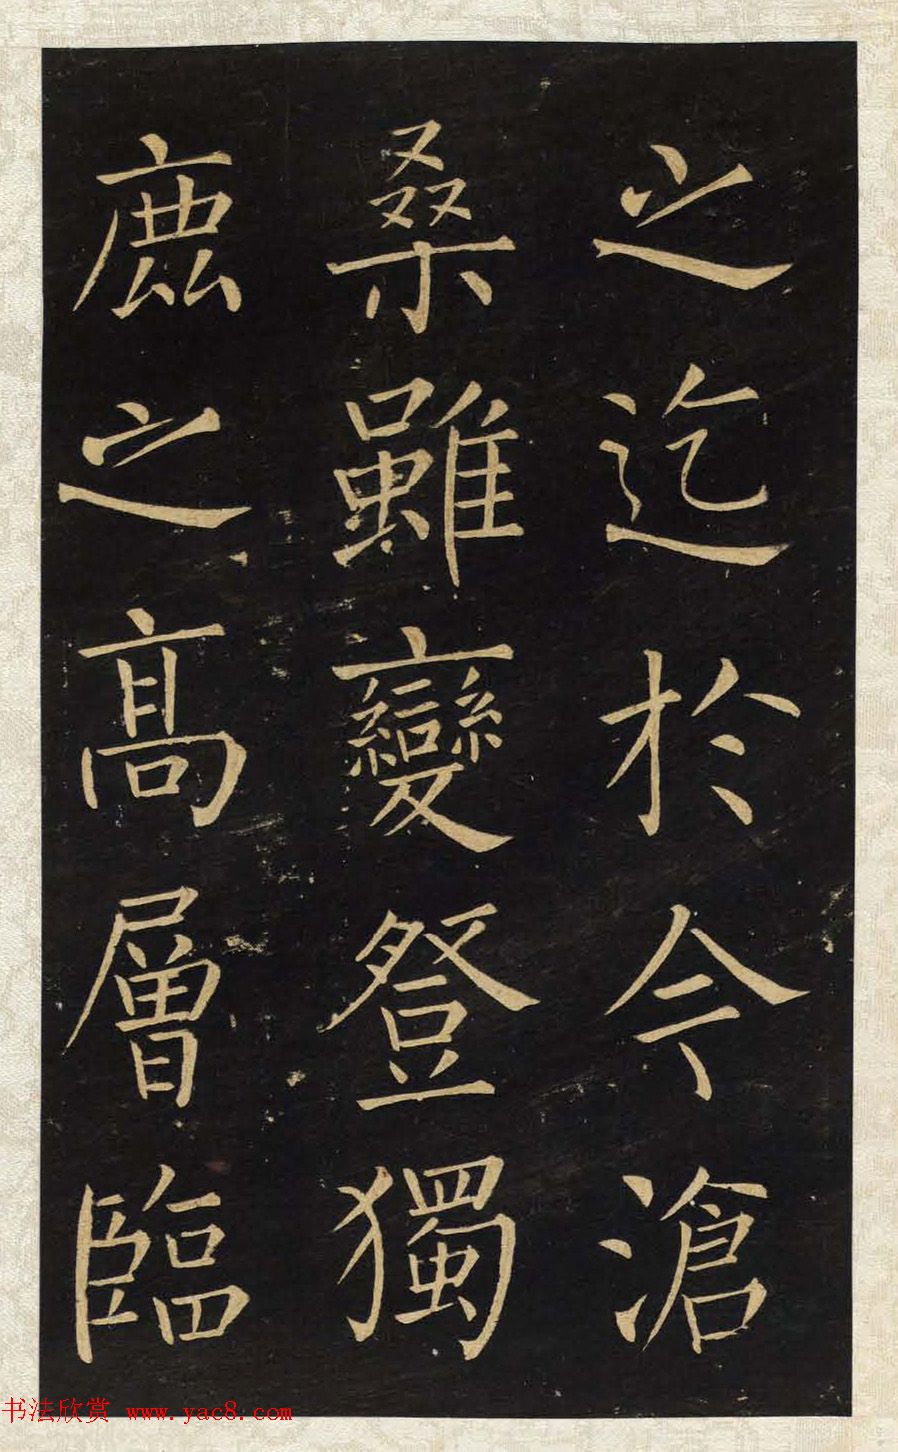 之迄於今滄
桑雖變登獨
鹿之髙層臨
书法欣赏 www.yac8.com